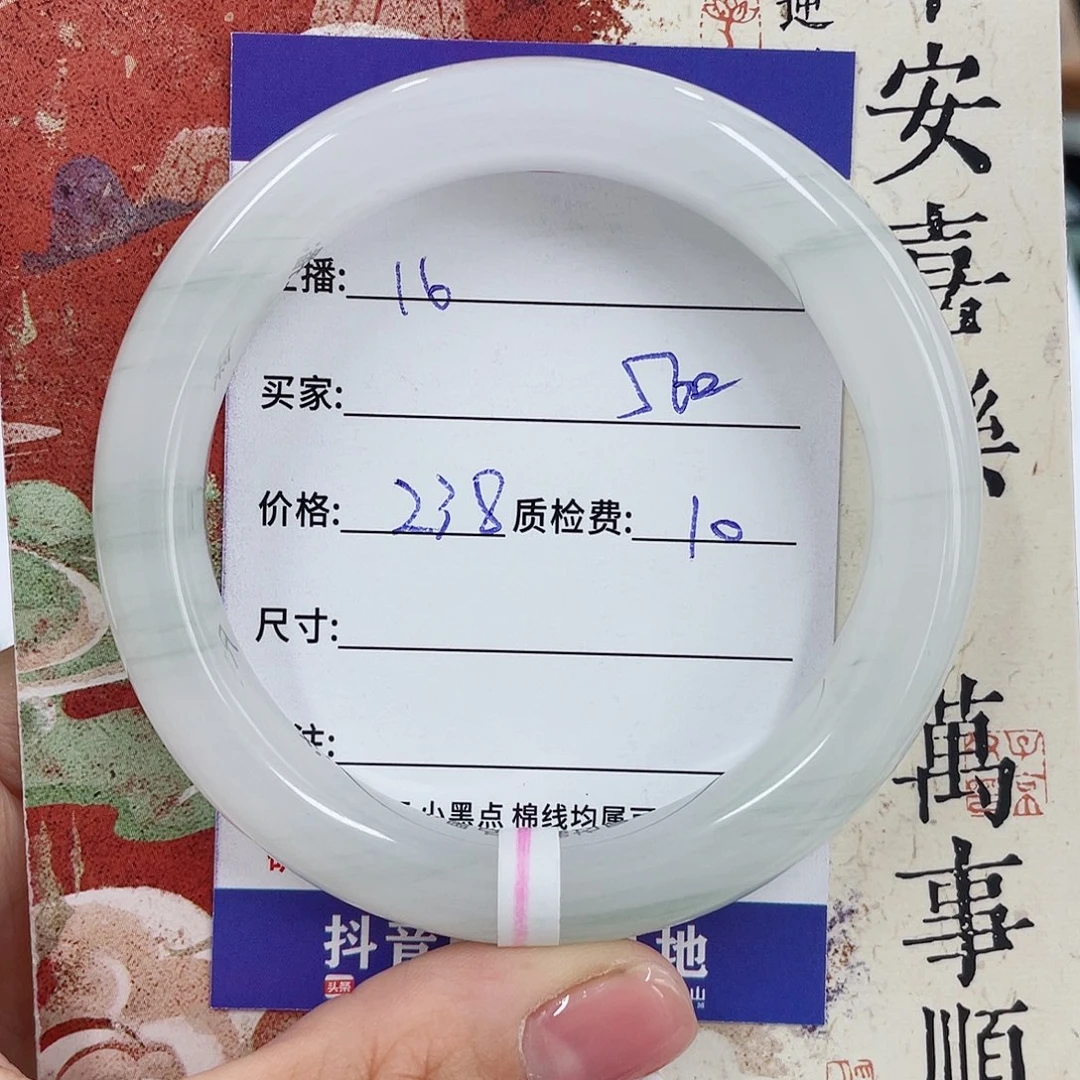 播: 16
买家: 560
价格: 238 质检费: 10
尺寸:
注:
小黑点 棉线均属
抖音 地
头条 山
安喜乐
萬事順